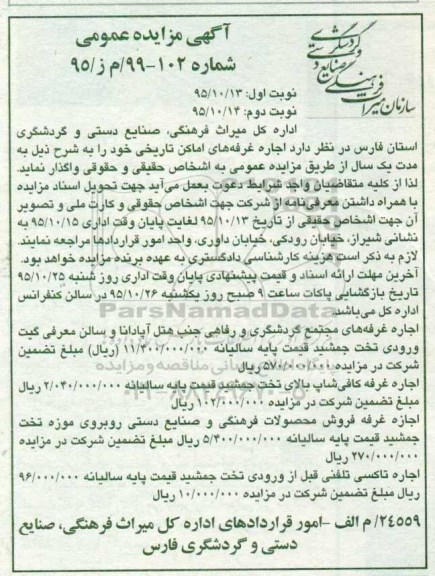 سازمان میراث فرهنگی صنایع دستی و گردشگری
آگهی مزایده عمومی
شماره ۱۰۲-۹۹/م ز/۹۵
نوبت اول: ۹۵/۱۰/۱۳
نوبت دوم: ۹۵/۱۰/۱۴
اداره کل میراث فرهنگی، صنایع دستی و گردشگری
استان فارس در نظر دارد اجاره غرفه‌های اماکن تاریخی خود را به شرح ذیل به
مدت یک سال از طریق مزایده عمومی به اشخاص حقیقی و حقوقی واگذار نماید.
لذا از کلیه متقاضیان واجد شرایط دعوت بعمل می‌آید جهت تحویل اسناد مزایده
با همراه داشتن معرفی‌نامه از شرکت جهت اشخاص حقوقی و کارت ملی و تصویر
آن جهت اشخاص حقیقی از تاریخ ۹۵/۱۰/۱۳ لغایت پایان وقت اداری ۹۵/۱۰/۱۵ به
نشانی شیراز، خیابان رودکی، خیابان داوری، واحد امور قراردادها مراجعه نمایند.
لازم به ذکر است هزینه کارشناسی دادگستری به عهده برنده مزایده خواهد بود.
آخرین مهلت ارائه اسناد و قیمت پیشنهادی پایان وقت اداری روز شنبه ۹۵/۱۰/۲۵
تاریخ بازگشایی پاکات ساعت ۹ صبح روز یکشنبه ۹۵/۱۰/۲۶ در سالن کنفرانس
اداره کل می‌باشد.
اجاره غرفه‌های مجتمع گردشگری و رفاهی جنب هتل آپادانا و سالن معرفی گیت
ورودی تخت جمشید قیمت پایه سالیانه ۱۱/۴۰۰/۰۰۰/۰۰۰ (ریال) مبلغ تضمین
شرکت در مزایده ۵۷۰/۰۰۰/۰۰۰ ریال
اجاره غرفه کافی‌شاپ بالای تخت جمشید قیمت پایه سالیانه ۲/۰۴۰/۰۰۰/۰۰۰ ریال
مبلغ تضمین شرکت در مزایده ۱۰۲/۰۰۰/۰۰۰ ریال
اجازه غرفه فروش محصولات فرهنگی و صنایع دستی روبروی موزه تخت
جمشید قیمت پایه سالیانه ۵/۴۰۰/۰۰۰/۰۰۰ ریال مبلغ تضمین شرکت در مزایده
۲۷۰/۰۰۰/۰۰۰ ریال
اجاره تاکسی تلفنی قبل از ورودی تخت جمشید قیمت پایه سالیانه ۹۶/۰۰۰/۰۰۰
ریال مبلغ تضمین شرکت در مزایده ۱۰/۰۰۰/۰۰۰ ریال
۲۴۵۵۹/ م الف -امور قراردادهای اداره کل میراث فرهنگی، صنایع
دستی و گردشگری فارس
ParsNamadData